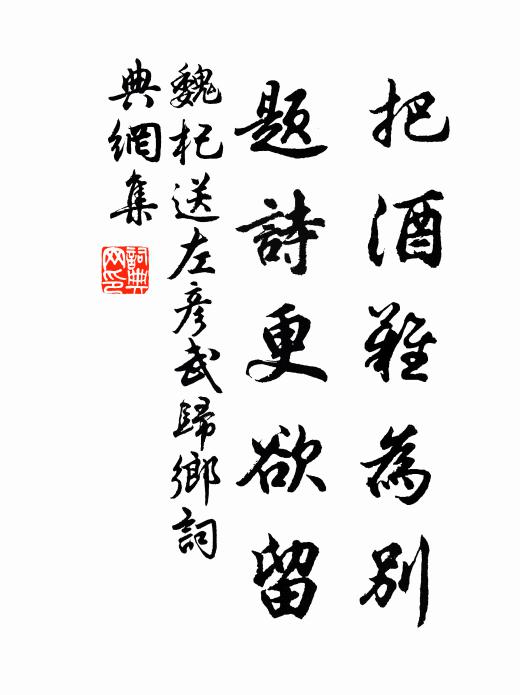 把酒難為別
題詩更欲留
魏杞送左彥武歸鄉詞
典網集
詞典
网印